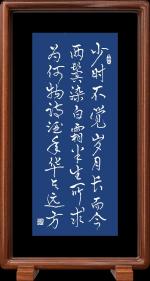 少时不觉岁月长而今
两鬓染白霜半生所求
为何物诗酒年华与远方